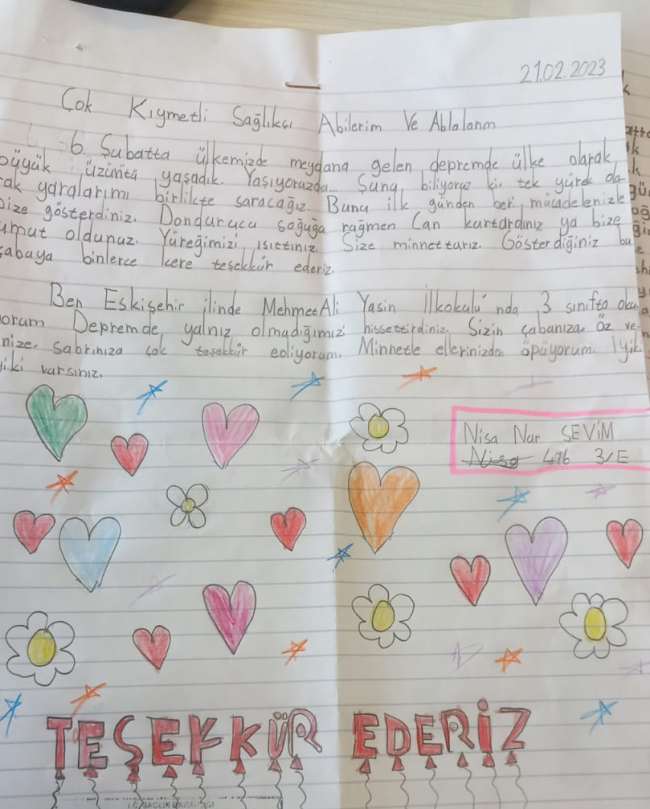 21.02.2023
Çok Kıymetli Sağlıkçı Abilerim Ve Ablalarım
6 Şubatta ülkemizde meydana gelen depremde ülke olarak
büyük üzüntü yaşadık. Yaşıyoruzda... Şunu biliyoruz ki tek yürek ola-
rak yaralarımı birlikte saracağız. Bunu ilk günden beri mücadelenizle
bize gösterdiniz. Dondurucu soğuğa rağmen Can kurtardınız ya bize
umut oldunuz. Yüreğimizi ısıttınız. Size minnettarız. Gösterdiğiniz bu
çabaya binlerce kere teşekkür ederiz.
Ben Eskişehir ilinde Mehmet Ali Yasin İlkokulu'nda 3 sınıfta
Depremde yalnız olmadığımızı hissettirdiniz. Sizin çabanıza. Öz ve-
nize. Sabrınıza çok teşekkür ediyorum. Minnetle ellerinizden öpüyorum. İyik
iki varsınız.
Nisa Nur SEVİM
476 3/E
TEŞEKKÜR EDERİZ